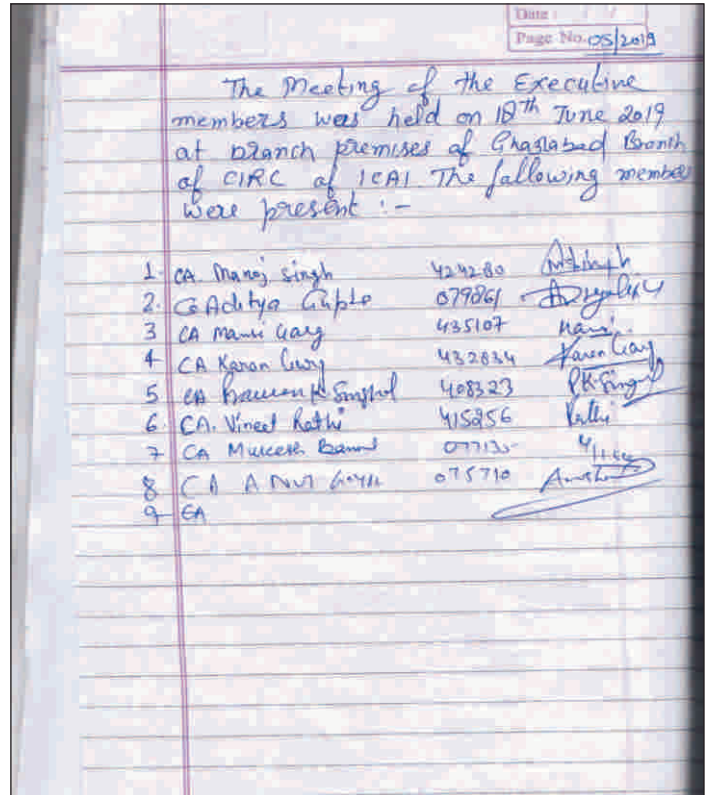 Date :
Page No. 05/2019
The Meeting of the Executive
members was held on 18th June 2019
at branch premises of Ghaziabad Branch
of CIRC of ICAI. The following member
were present :-
1. CA. Manoj Singh 424280
2. CA Aditya Gupta 079861
3 CA Mansi Garg 435107
4 CA Karan Garg 432834 Karan Garg
5 CA K Singhal 408323 PK Singhal
6. CA. Vineet Rathi 415256 Rathi
7 CA Mukesh Bansal
8 CA ANUJ GOYAL 075710
9 CA